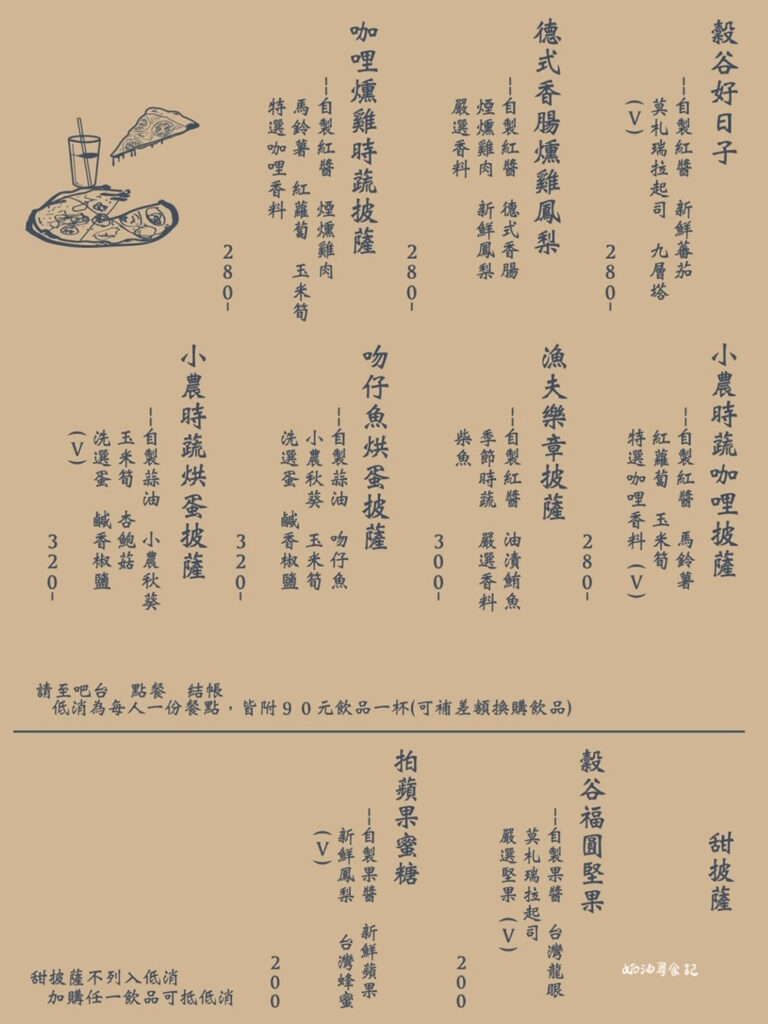 穀谷好日子
--自製紅醬 新鮮蕃茄
莫札瑞拉起司 九層塔
(V)
280-
德式香腸燻雞鳳梨
--自製紅醬 德式香腸
煙燻雞肉 新鮮鳳梨
嚴選香料
280-
咖哩燻雞時蔬披薩
--自製紅醬 煙燻雞肉
馬鈴薯 紅蘿蔔 玉米筍
特選咖哩香料
280-
小農時蔬咖哩披薩
--自製紅醬 馬鈴薯
紅蘿蔔 玉米筍
特選咖哩香料(V)
280-
漁夫樂章披薩
--自製紅醬 油漬鮪魚
季節時蔬 嚴選香料
柴魚
300-
吻仔魚烘蛋披薩
--自製蒜油 吻仔魚
小農秋葵 玉米筍
洗選蛋 鹹香椒鹽
320-
小農時蔬烘蛋披薩
--自製蒜油 小農秋葵
玉米筍 杏鮑菇
洗選蛋 鹹香椒鹽
(V)
320-
請至吧台 點餐 結帳
低消為每人一份餐點，皆附90元飲品一杯(可補差額換購飲品)
甜披薩
穀谷福圓堅果
--自製果醬 台灣龍眼
莫札瑞拉起司
嚴選堅果(V)
200
拍蘋果蜜糖
--自製果醬 新鮮蘋果
新鮮鳳梨 台灣蜂蜜
(V)
200
甜披薩不列入低消
加購任一飲品可抵低消
奶油尋食記